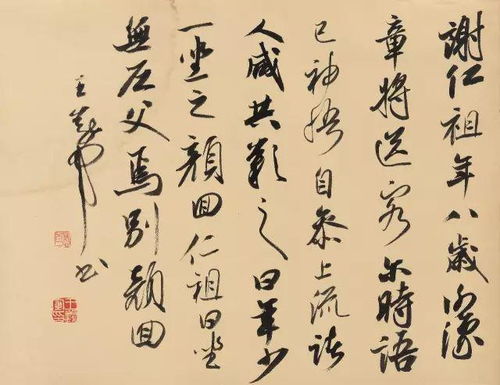 謝仁祖年八歲謝豫
章將送客尔時語
已神悟自參上流諸
人咸共歎之曰年少
一坐之顏回仁祖曰坐
無尼父焉別顏回
王书